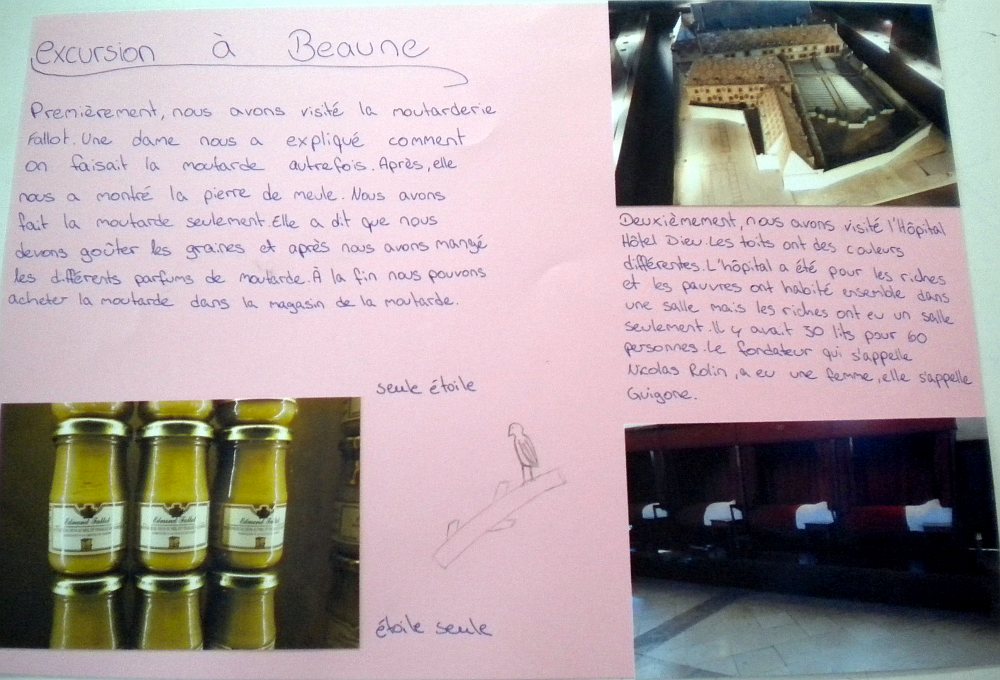 excursion à Beaune
Premièrement, nous avons visité la moutarderie
Fallot. Une dame nous a expliqué comment
on faisait la moutarde autrefois. Après, elle
nous a montré la pierre de meule. Nous avons
fait la moutarde seulement. Elle a dit que nous
devons goûter les graines et après nous avons mangé
les différents parfums de moutarde. À la fin nous pouvons
acheter la moutarde dans la magasin de la moutarde.
Deuxièmement, nous avons visité l'Hôpital
Hôtel Dieu. Les toits ont des couleurs
différentes. L'hôpital a été pour les riches
et les pauvres ont habité ensemble dans
une salle mais les riches ont eu un salle
seulement. Il y avait 30 lits pour 60
personnes. Le fondateur qui s'appelle
Nicolas Rolin, a eu une femme, elle s'appelle
Guigone.
seule étoile
étoile seule
Edmond Fallot
Edmond Fallot
Edmond Fallot